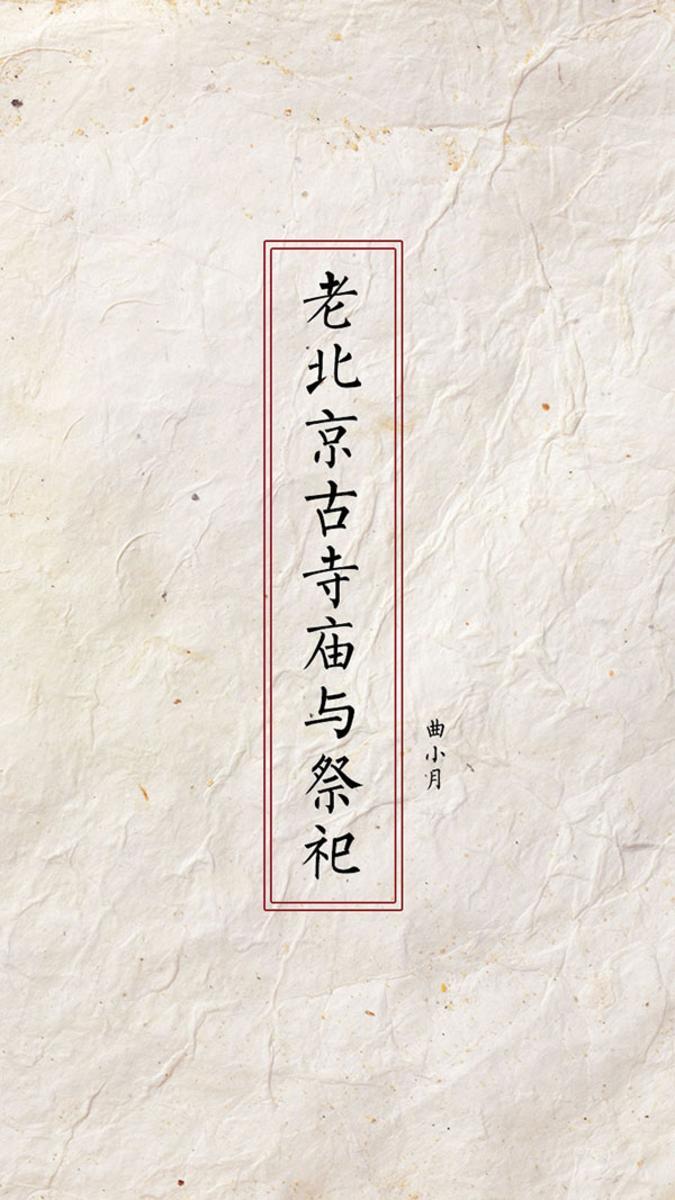 老北京古寺庙与祭祀
曲小月